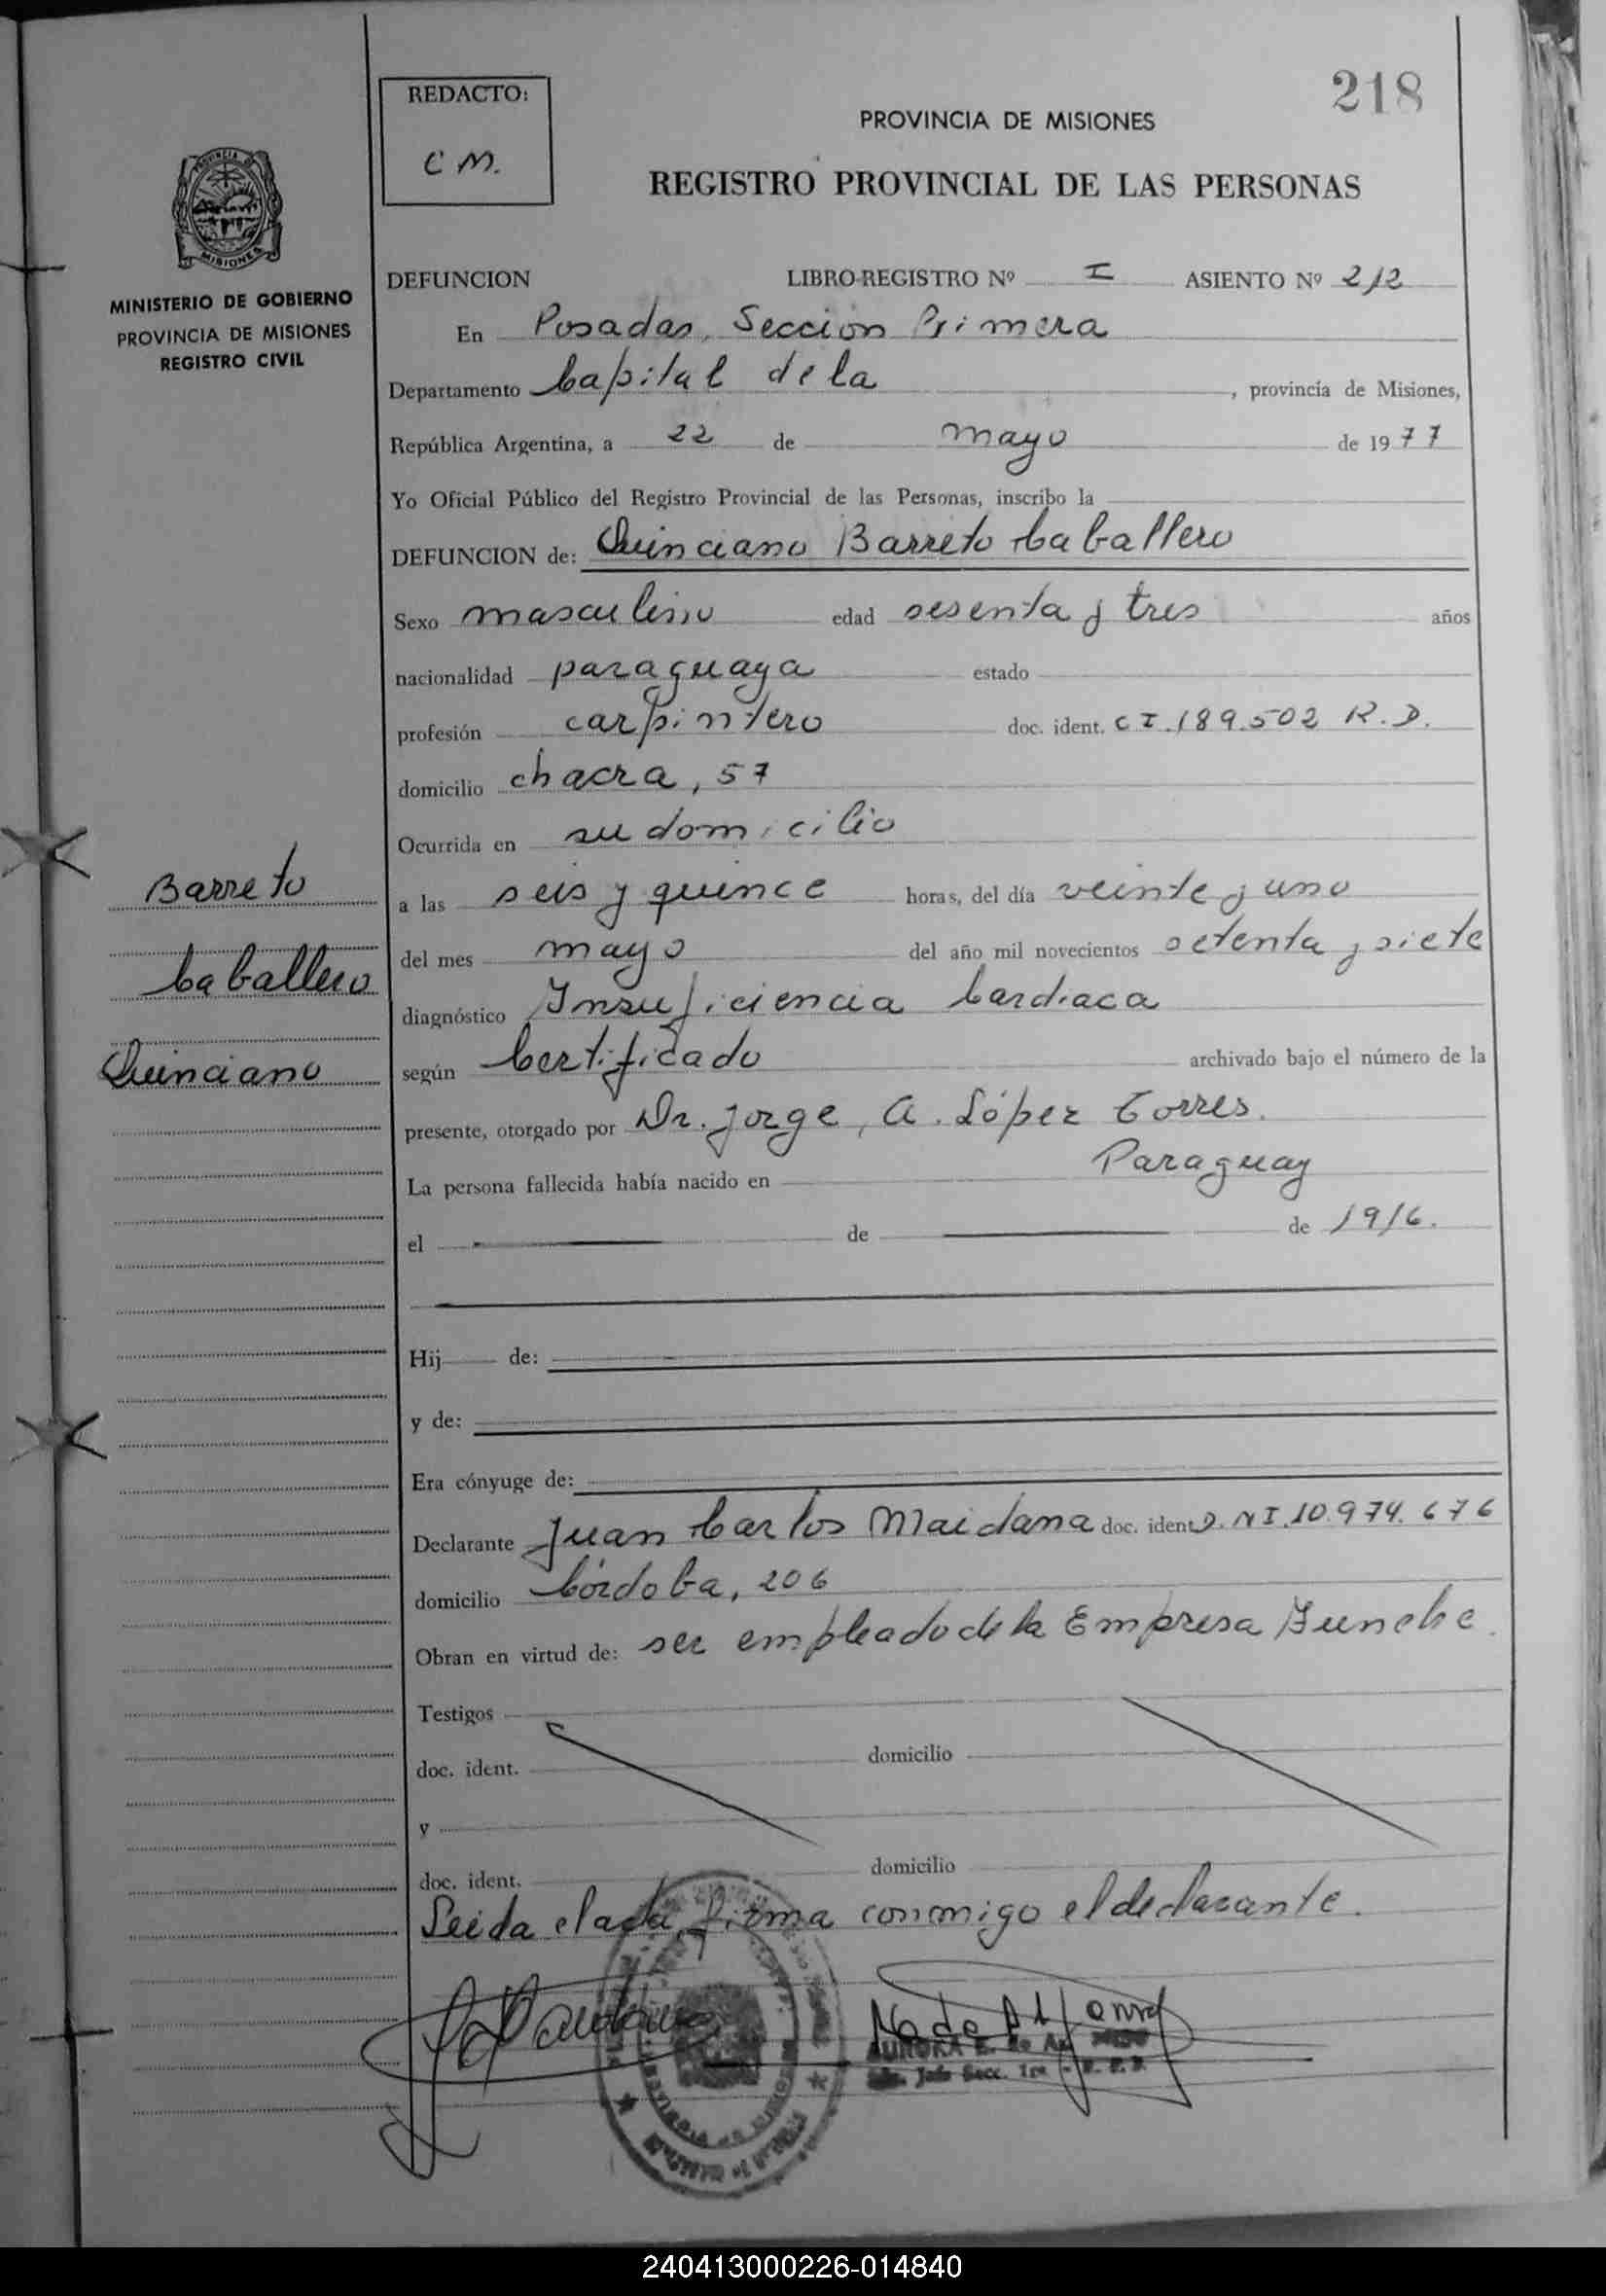 218
REDACTO:
C M.
PROVINCIA DE MISIONES
REGISTRO PROVINCIAL DE LAS PERSONAS
MINISTERIO DE GOBIERNO
PROVINCIA DE MISIONES
REGISTRO CIVIL
DEFUNCION LIBRO-REGISTRO Nº I ASIENTO Nº 212
En Posadas, Sección Primera
Departamento Capital de la, provincia de Misiones,
República Argentina, a 22 de mayo de 1977
Yo Oficial Público del Registro Provincial de las Personas, inscribo la
DEFUNCION de: Quinciano Barreto Caballero
Sexo masculino edad sesenta y tres años
nacionalidad paraguaya estado
profesión carpintero doc. ident. C I. 189.502 R. D.
domicilio chacra, 57
Ocurrida en su domicilio
Barreto
a las seis y quince horas, del día veinte y uno
del mes mayo del año mil novecientos setenta y siete
Caballero
diagnóstico Insuficiencia Cardiaca
Quinciano
según Certificado archivado bajo el número de la
presente, otorgado por Dr. Jorge, A. López Torres.
La persona fallecida había nacido en Paraguay
el de de 1916.
Hij de:
y de:
Era cónyuge de:
Declarante Juan Carlos Maidana doc. ident D. N I. 10.974.676
domicilio Córdoba, 206
Obran en virtud de: ser empleado de la Empresa Funebre.
Testigos
doc. ident. domicilio
y
doc. ident. domicilio
Leida el acta, firma conmigo el declarante.
AURORA E. de
Jefe Secc. 1ra - R. P. P.
240413000226-014840